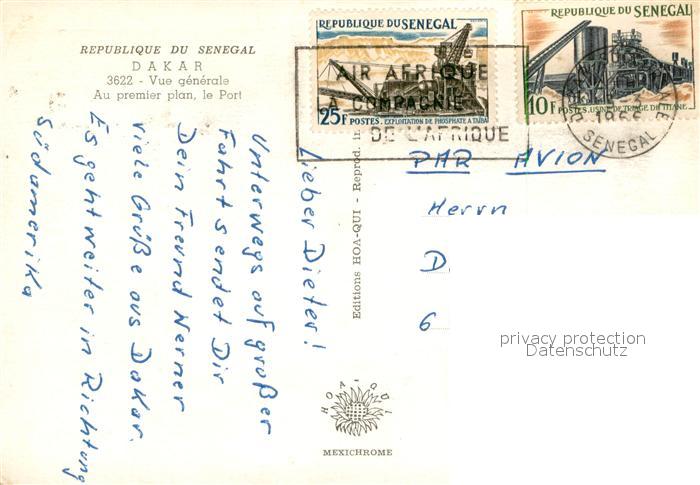 REPUBLIQUE DU SENEGAL
DAKAR
3622 - Vue générale
Au premier plan, le Port
Lieber Dieter!
Unterwegs auf großer
Fahrt sendet Dir
Dein Freund Werner
viele Grüße aus Dakar.
Es geht weiter in Richtung
Südamerika
Editions HOA-QUI - Reprod. in
HOA-QUI
MEXICHROME
REPUBLIQUE DU SENEGAL
25F POSTES. EXPLOITATION DE PHOSPHATE A TAIBA
REPUBLIQUE DU SENEGAL
10F POSTES. USINE DE TRIAGE DU TITANE
AIR AFRIQUE
LA COMPAGNIE
DE L'AFRIQUE
1966
SENEGAL
PAR AVION
Herrn
D
6
privacy protection
Datenschutz